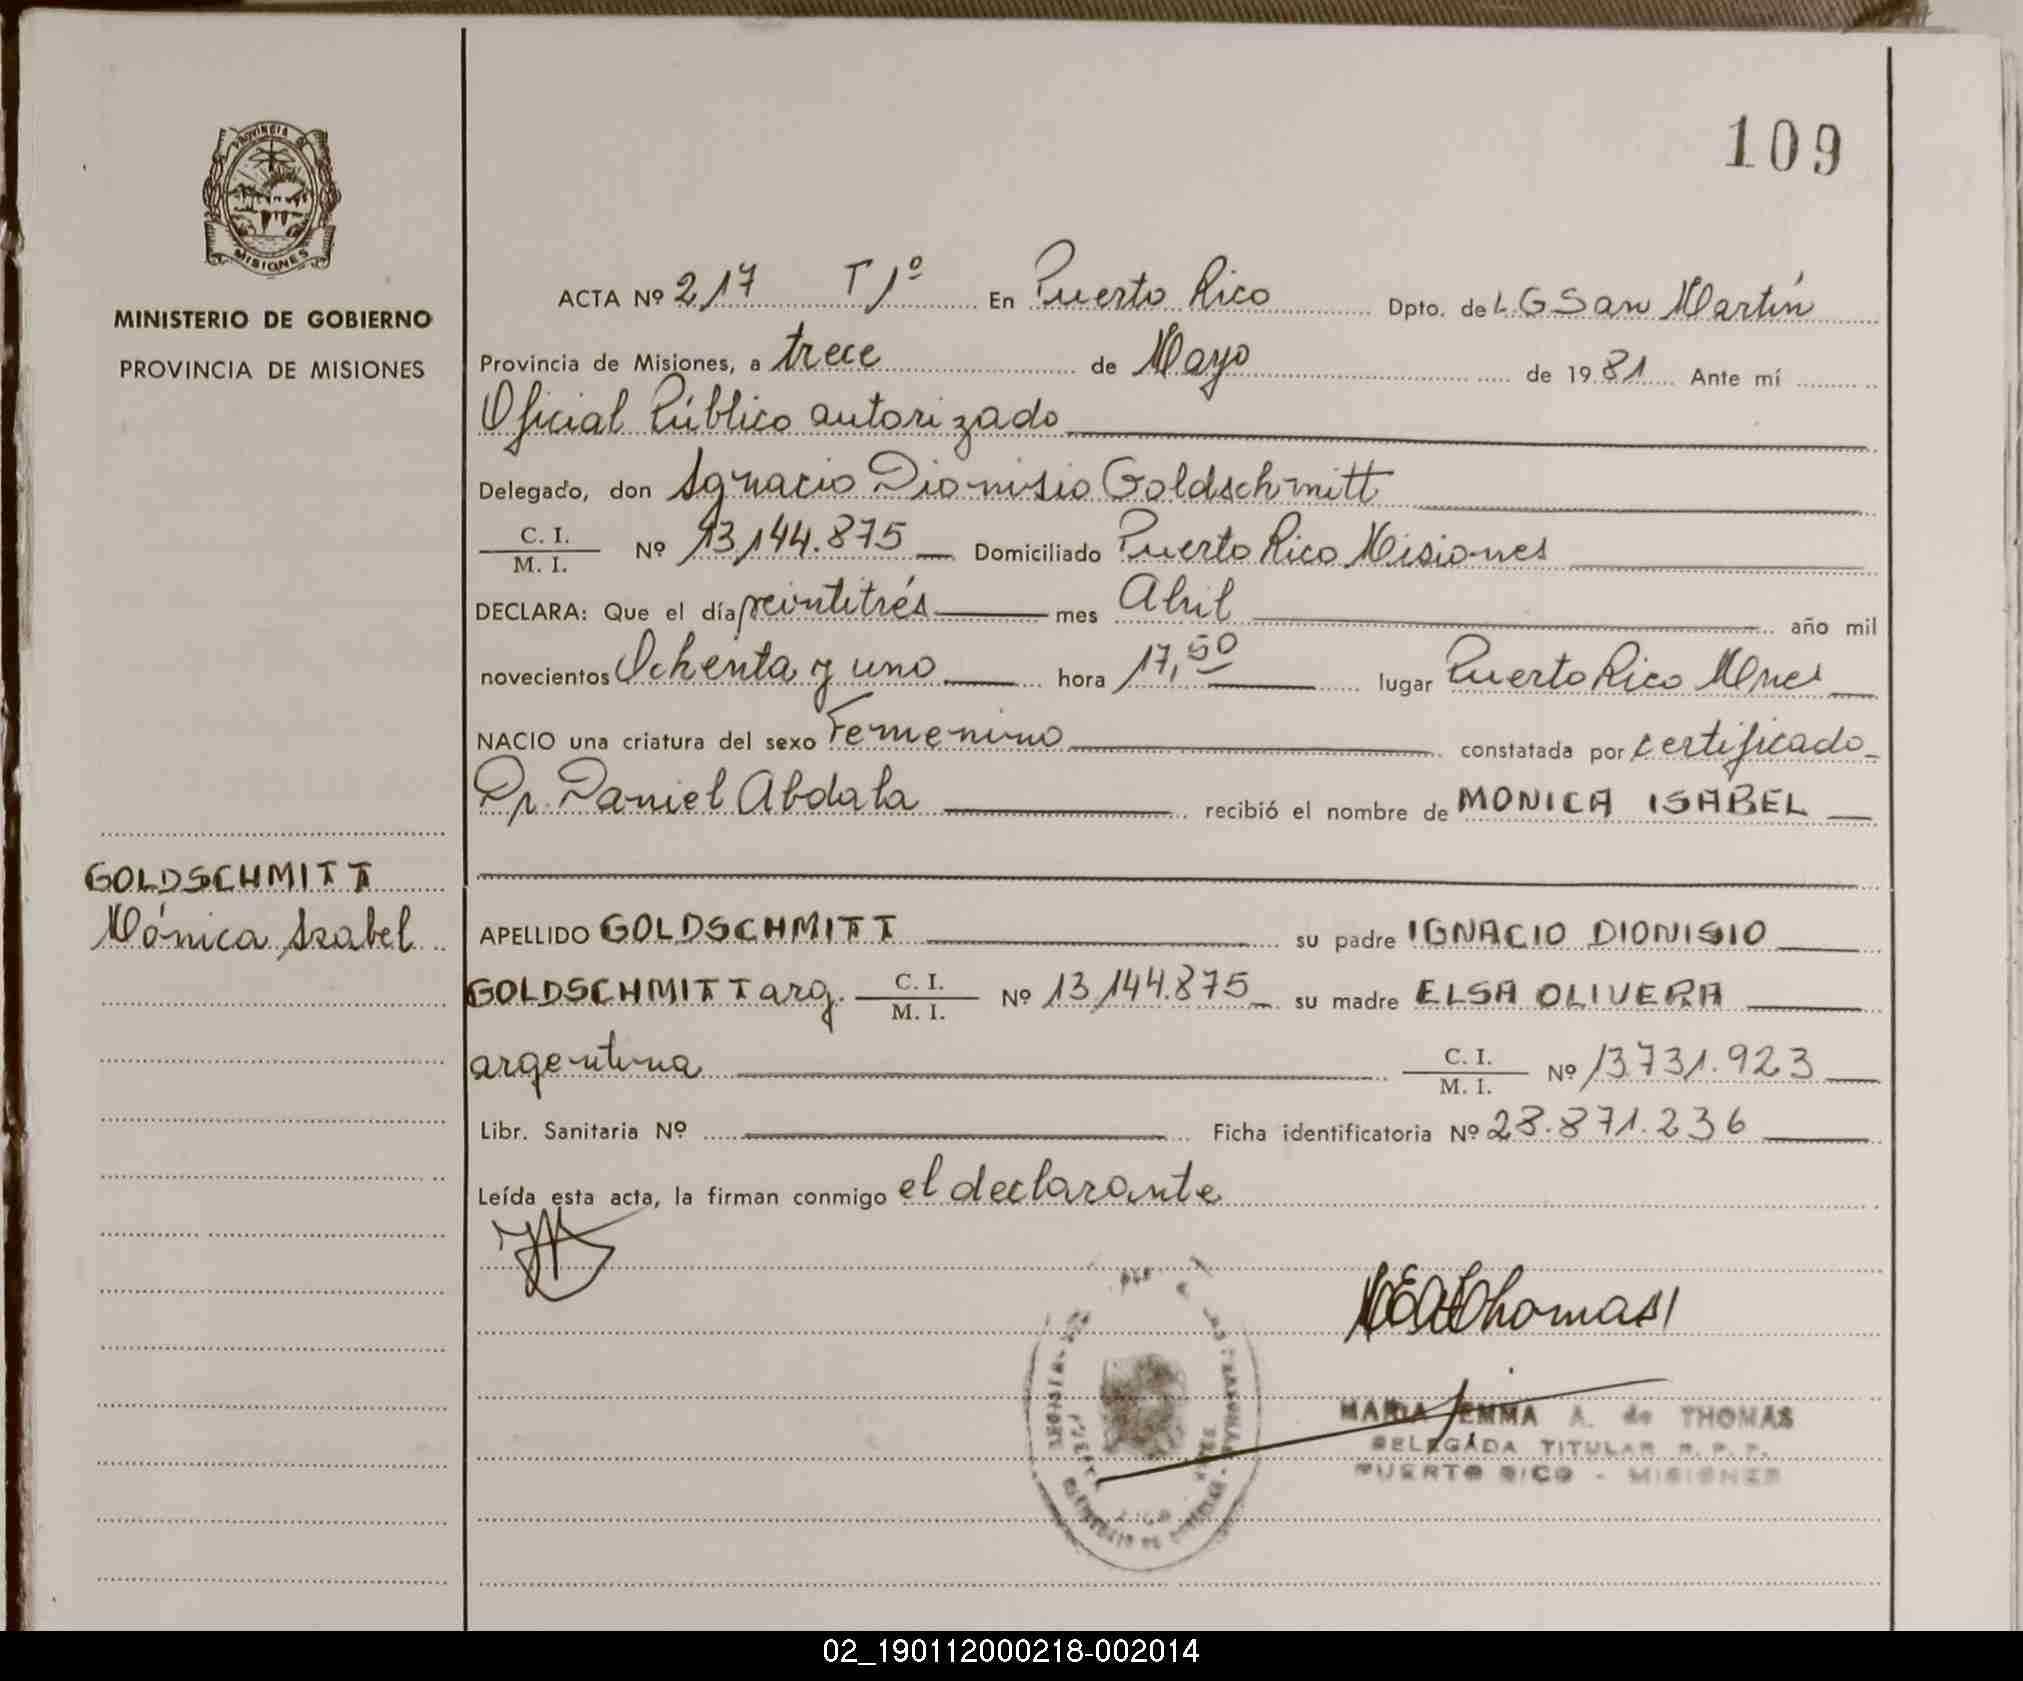 109
PROVINCIA
MISIONES
MINISTERIO DE GOBIERNO
PROVINCIA DE MISIONES
ACTA Nº 217 T 1º En Puerto Rico Dpto. de L.G San Martín
Provincia de Misiones, a trece de Mayo de 1981 Ante mí
Oficial Público autorizado
Delegado, don Ignacio Dionisio Goldschmitt
C. I.
M. I. Nº 13,144.875 Domiciliado Puerto Rico Misiones
DECLARA: Que el día veintitrés mes Abril año mil
novecientos Ochenta y uno hora 17,50 lugar Puerto Rico Mnes
NACIO una criatura del sexo Femenino constatada por certificado
Dr. Daniel Abdala recibió el nombre de MONICA ISABEL
GOLDSCHMITT
Mónica Isabel
APELLIDO GOLDSCHMITT su padre IGNACIO DIONISIO
GOLDSCHMITT arg. C. I. M. I. Nº 13,144.875 su madre ELSA OLIVERA
argentina C. I. M. I. Nº 13731.923
Libr. Sanitaria Nº Ficha identificatoria Nº 28.871.236
Leída esta acta, la firman conmigo el declarante
MARIA EMMA A. de THOMAS
DELEGADA TITULAR R. P. P.
PUERTO RICO - MISIONES
02_190112000218-002014